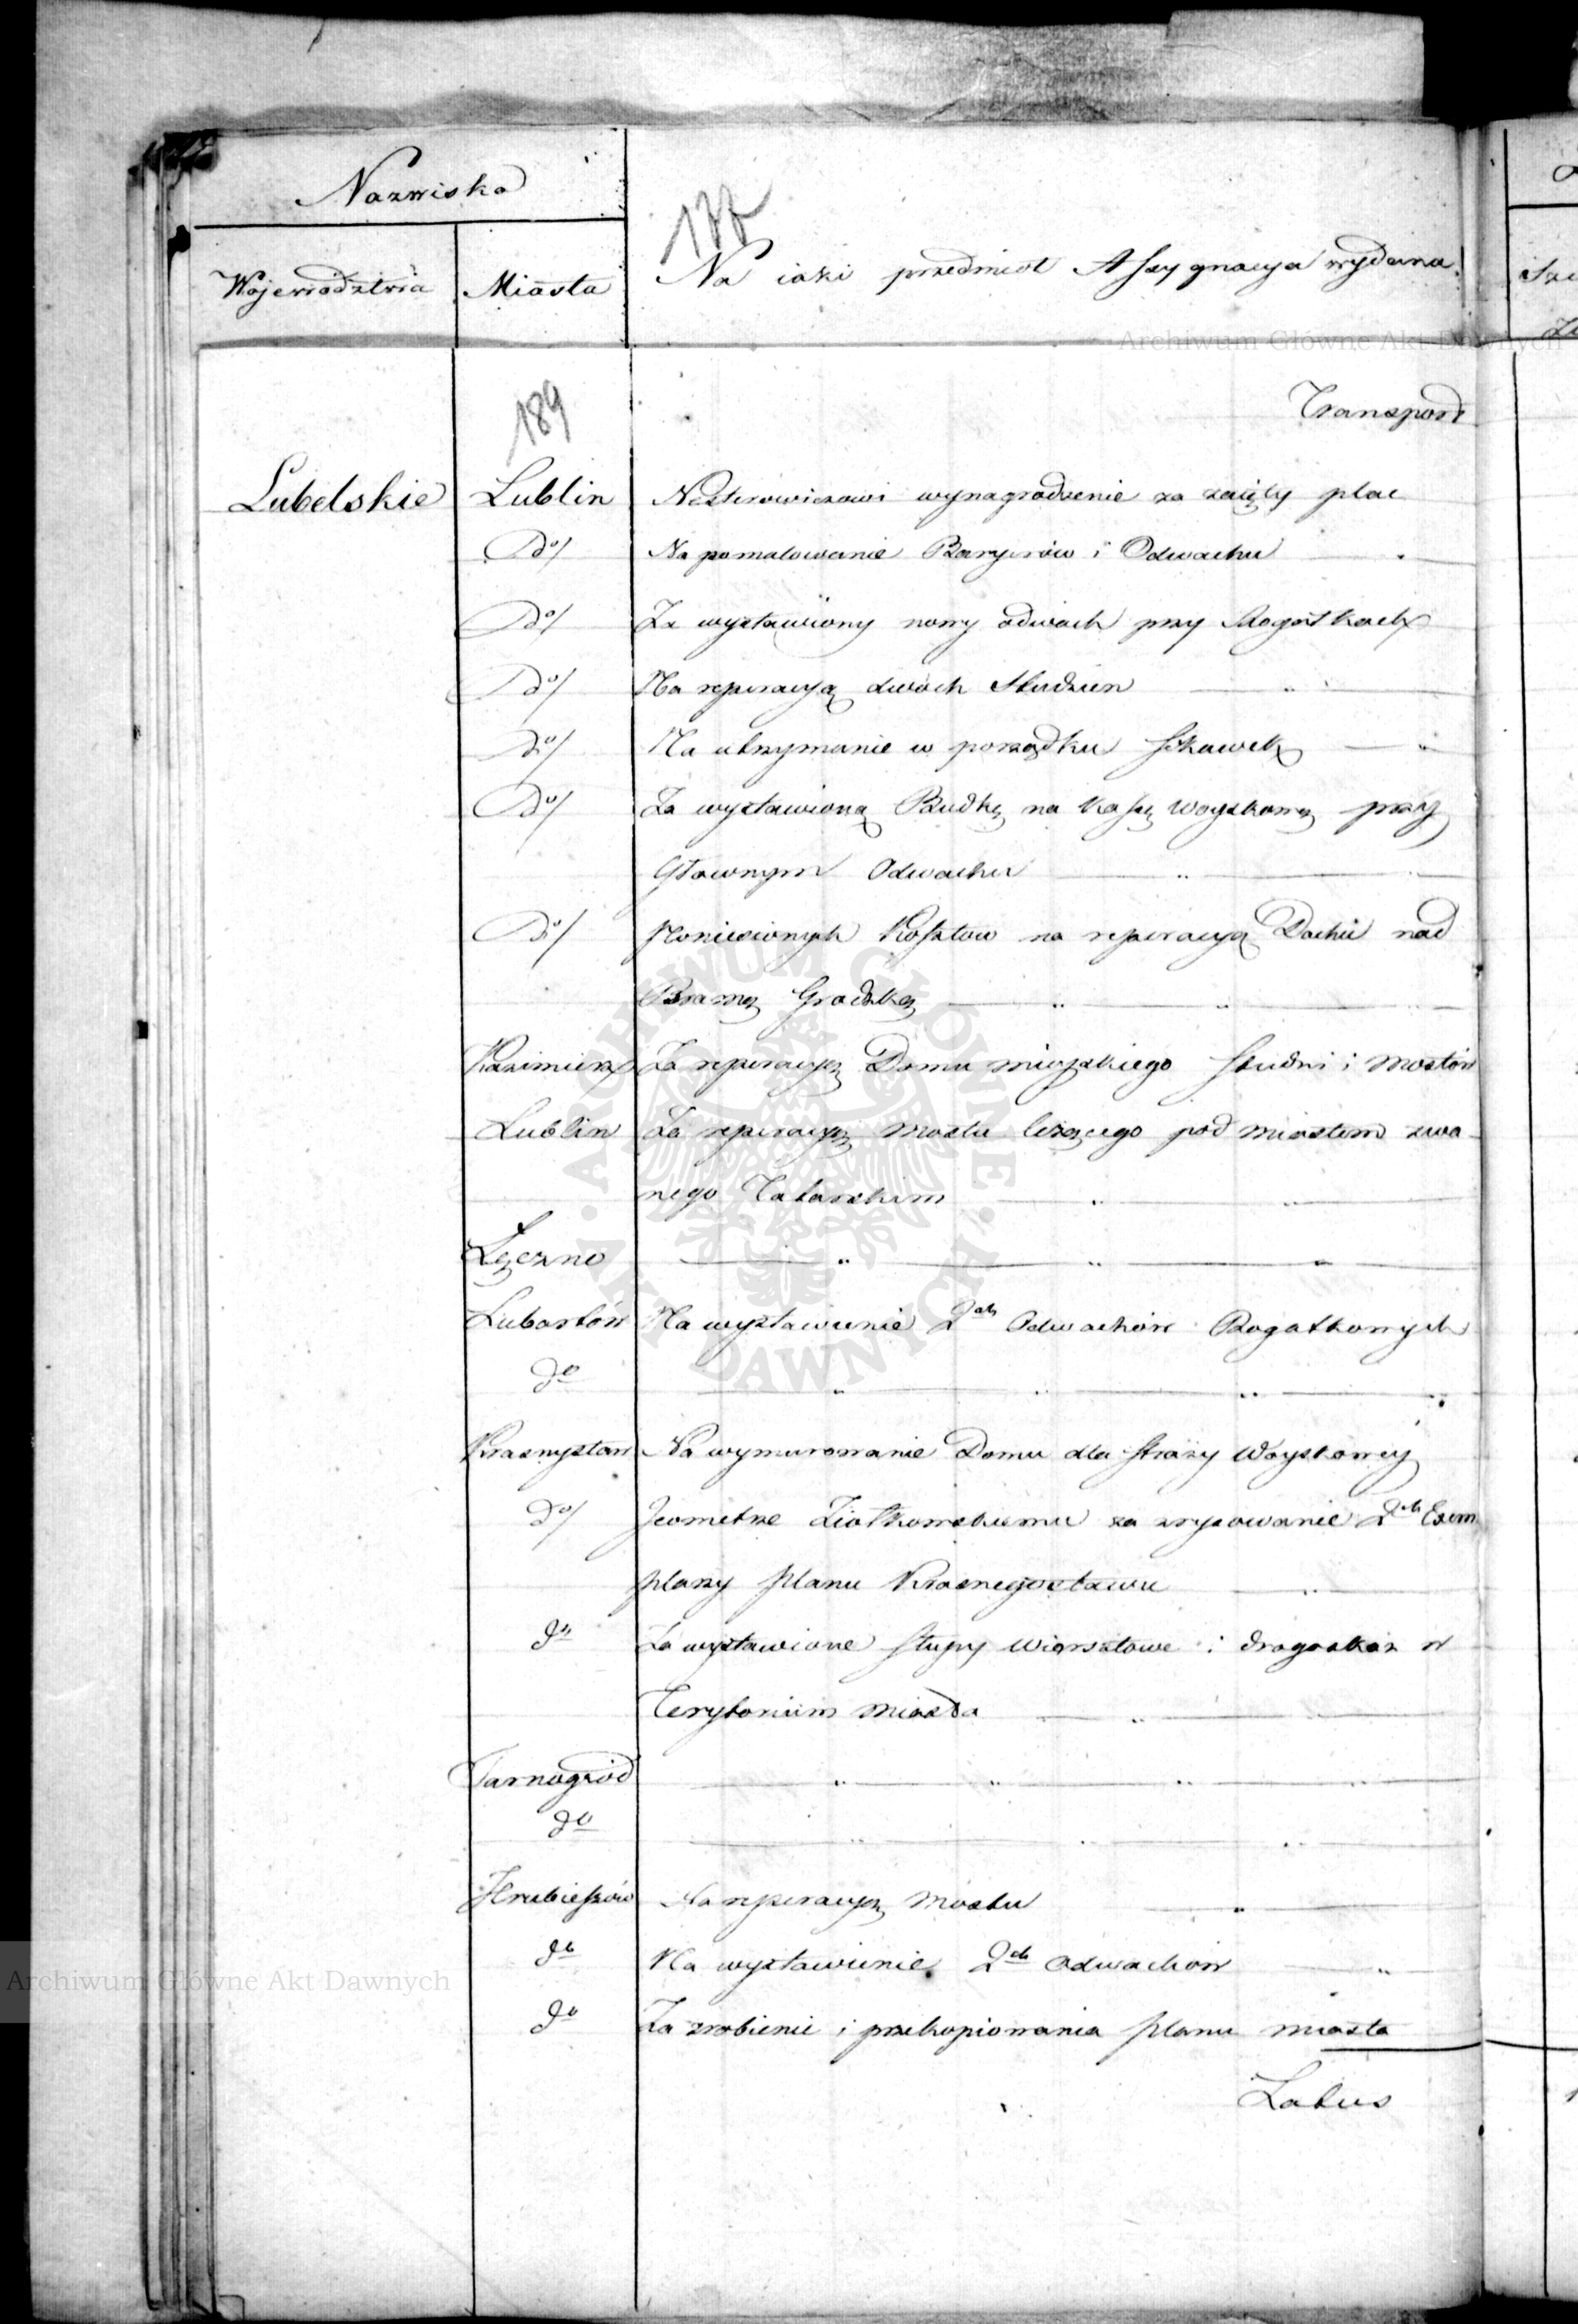 Nazwiska
177
Na iaki przedmiot Assygnacya wydana
Wojewodztwa Miasta
Archiwum Główne Akt Dawnych
189
Transport
Lubelskie Lublin Nesterowiczowi wynagrodzenie za zaięty plac
Do/ Na pomalowanie Baryerów i Odwachu
Do/ Za wystawiony nowy odwach przy Rogatkach
Do/ Na reperacyą dwóch Studzien
do/ Na utrzymanie w porządku sikawek
Do/ Za wystawioną Budkę na Kassę Woyskową przy
Głownym Odwachu
Do/ Poniesionych Kosztow na reperacyą Dachu nad
Bramą Grodzką
Kazimierz Za reperacyą Domu mieyskiego Studni i Mostów
Lublin Za reperacyą Mostu leżącego pod Miastem zwa
nego Tatarskim
Łęczno
Lubartów Na wystawienie 2ch Odwachów Rogatkowych
do
Krasnystaw Na wymurowanie Domu dla straży Woyskowey
do/ Jeometrze Ziołkowskiemu za zrysowanie 2ch Exem
plarzy planu Krasnegostawu
do Za wystawione słupy Wiorstowe i drogoskaz w
Terytorium Miasta
Tarnogród
do
Hrubieszów Na reperacyą Mostu
do Na wystawienie 2ch Odwachów
Archiwum Główne Akt Dawnych
do Za zrobienie i przekopiowania planu miasta
Latus